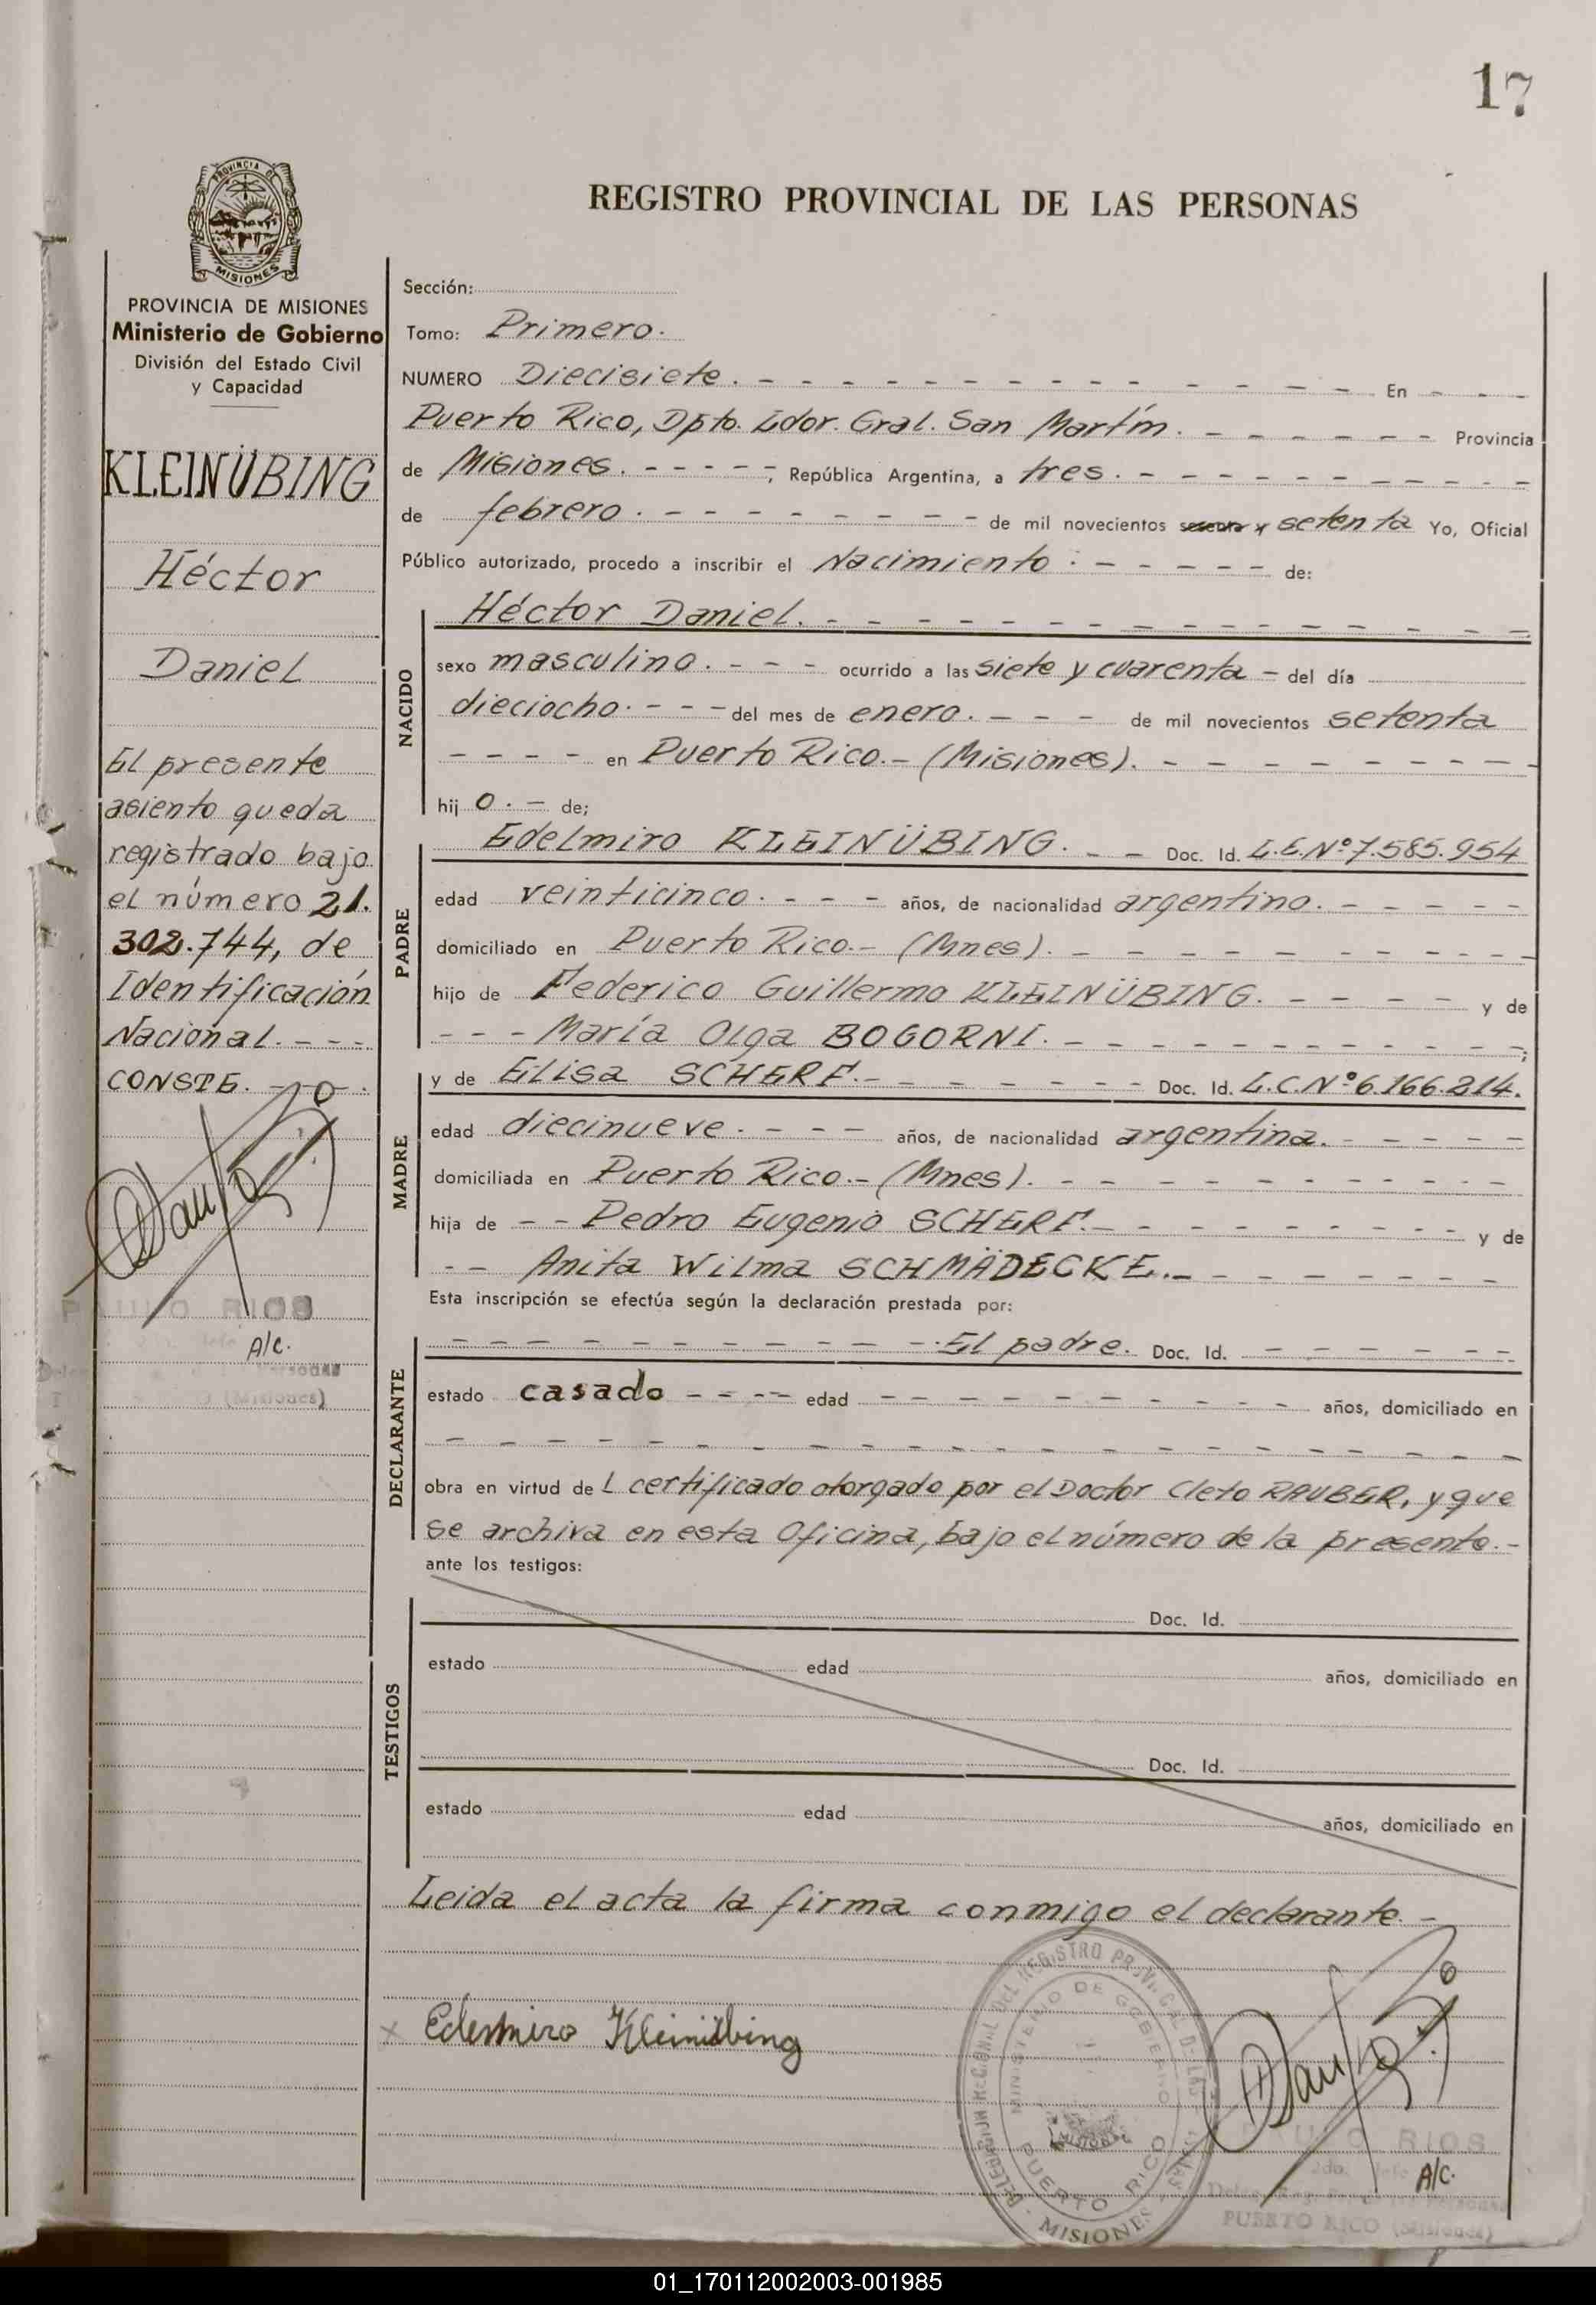 17
PROVINCIA DE
MISIONES
REGISTRO PROVINCIAL DE LAS PERSONAS
PROVINCIA DE MISIONES
Ministerio de Gobierno
División del Estado Civil
y Capacidad
KLEINÜBING
Héctor
Daniel
El presente
asiento queda
registrado bajo
el número 21.
302.744, de
Identificación
Nacional. - - -
CONSTE. - - .
PAULO RIOS
A/C.
(Misiones)
Sección:
Tomo: Primero.
NUMERO Diecisiete. - - - - - - - - - - - - - - - En - - -
Puerto Rico, Dpto. Ldor. Gral. San Martín. - - - - - - Provincia
de Misiones. - - - - -, República Argentina, a tres. - - - - - - - - - -
de febrero. - - - - - - - - de mil novecientos sesenta y setenta Yo, Oficial
Público autorizado, procedo a inscribir el Nacimiento: - - - - - de:
NACIDO
Héctor Daniel. - - - - - - - - - - - - - - - -
sexo masculino. - - - ocurrido a las siete y cuarenta - del día
dieciocho. - - - del mes de enero. - - - de mil novecientos setenta
- - - - en Puerto Rico.- (Misiones). - - - - - - - - -
hij o. - de;
PADRE
Edelmiro KLEINÜBING. - - Doc. Id. L.E.Nº 7.585.954
edad veinticinco. - - - años, de nacionalidad argentino. - - - - -
domiciliado en Puerto Rico.- (Mnes). - - - - - - - - - - -
hijo de Federico Guillermo KLEINÜBING. - - - - y de
- - - María Olga BOGORNI. - - - - - - - - - - - ;
MADRE
y de Elisa SCHERF.- - - - - - - - Doc. Id. L.C.Nº 6.166.214.
edad diecinueve. - - - años, de nacionalidad argentina. - - - - -
domiciliada en Puerto Rico.- (Mnes). - - - - - - - - - - -
hija de - - Pedro Eugenio SCHERF.- - - - - - - - - y de
- - Anita Wilma SCHMÄDECKE.- - - - - - - -
Esta inscripción se efectúa según la declaración prestada por:
DECLARANTE
- - - - - - - - - - - El padre. Doc. Id. - - - - - -
estado casado - - - - edad - - - - - - - - - años, domiciliado en
- - - - - - - - - - - - - - - - - -
obra en virtud de l certificado otorgado por el Doctor Cleto RAUBER, y que
se archiva en esta Oficina, bajo el número de la presente.-
ante los testigos:
TESTIGOS
Doc. Id.
estado edad años, domiciliado en
Doc. Id.
estado edad años, domiciliado en
Leida el acta la firma conmigo el declarante. -
Edelmiro Kleinübing
DELEGACION REGIONAL DEL REGISTRO PROVINCIAL DE LAS PERSONAS
MINISTERIO DE GOBIERNO
PUERTO RICO
- MISIONES -
PAULO RIOS
A/C.
PUERTO RICO (Misiones)
01_170112002003-001985